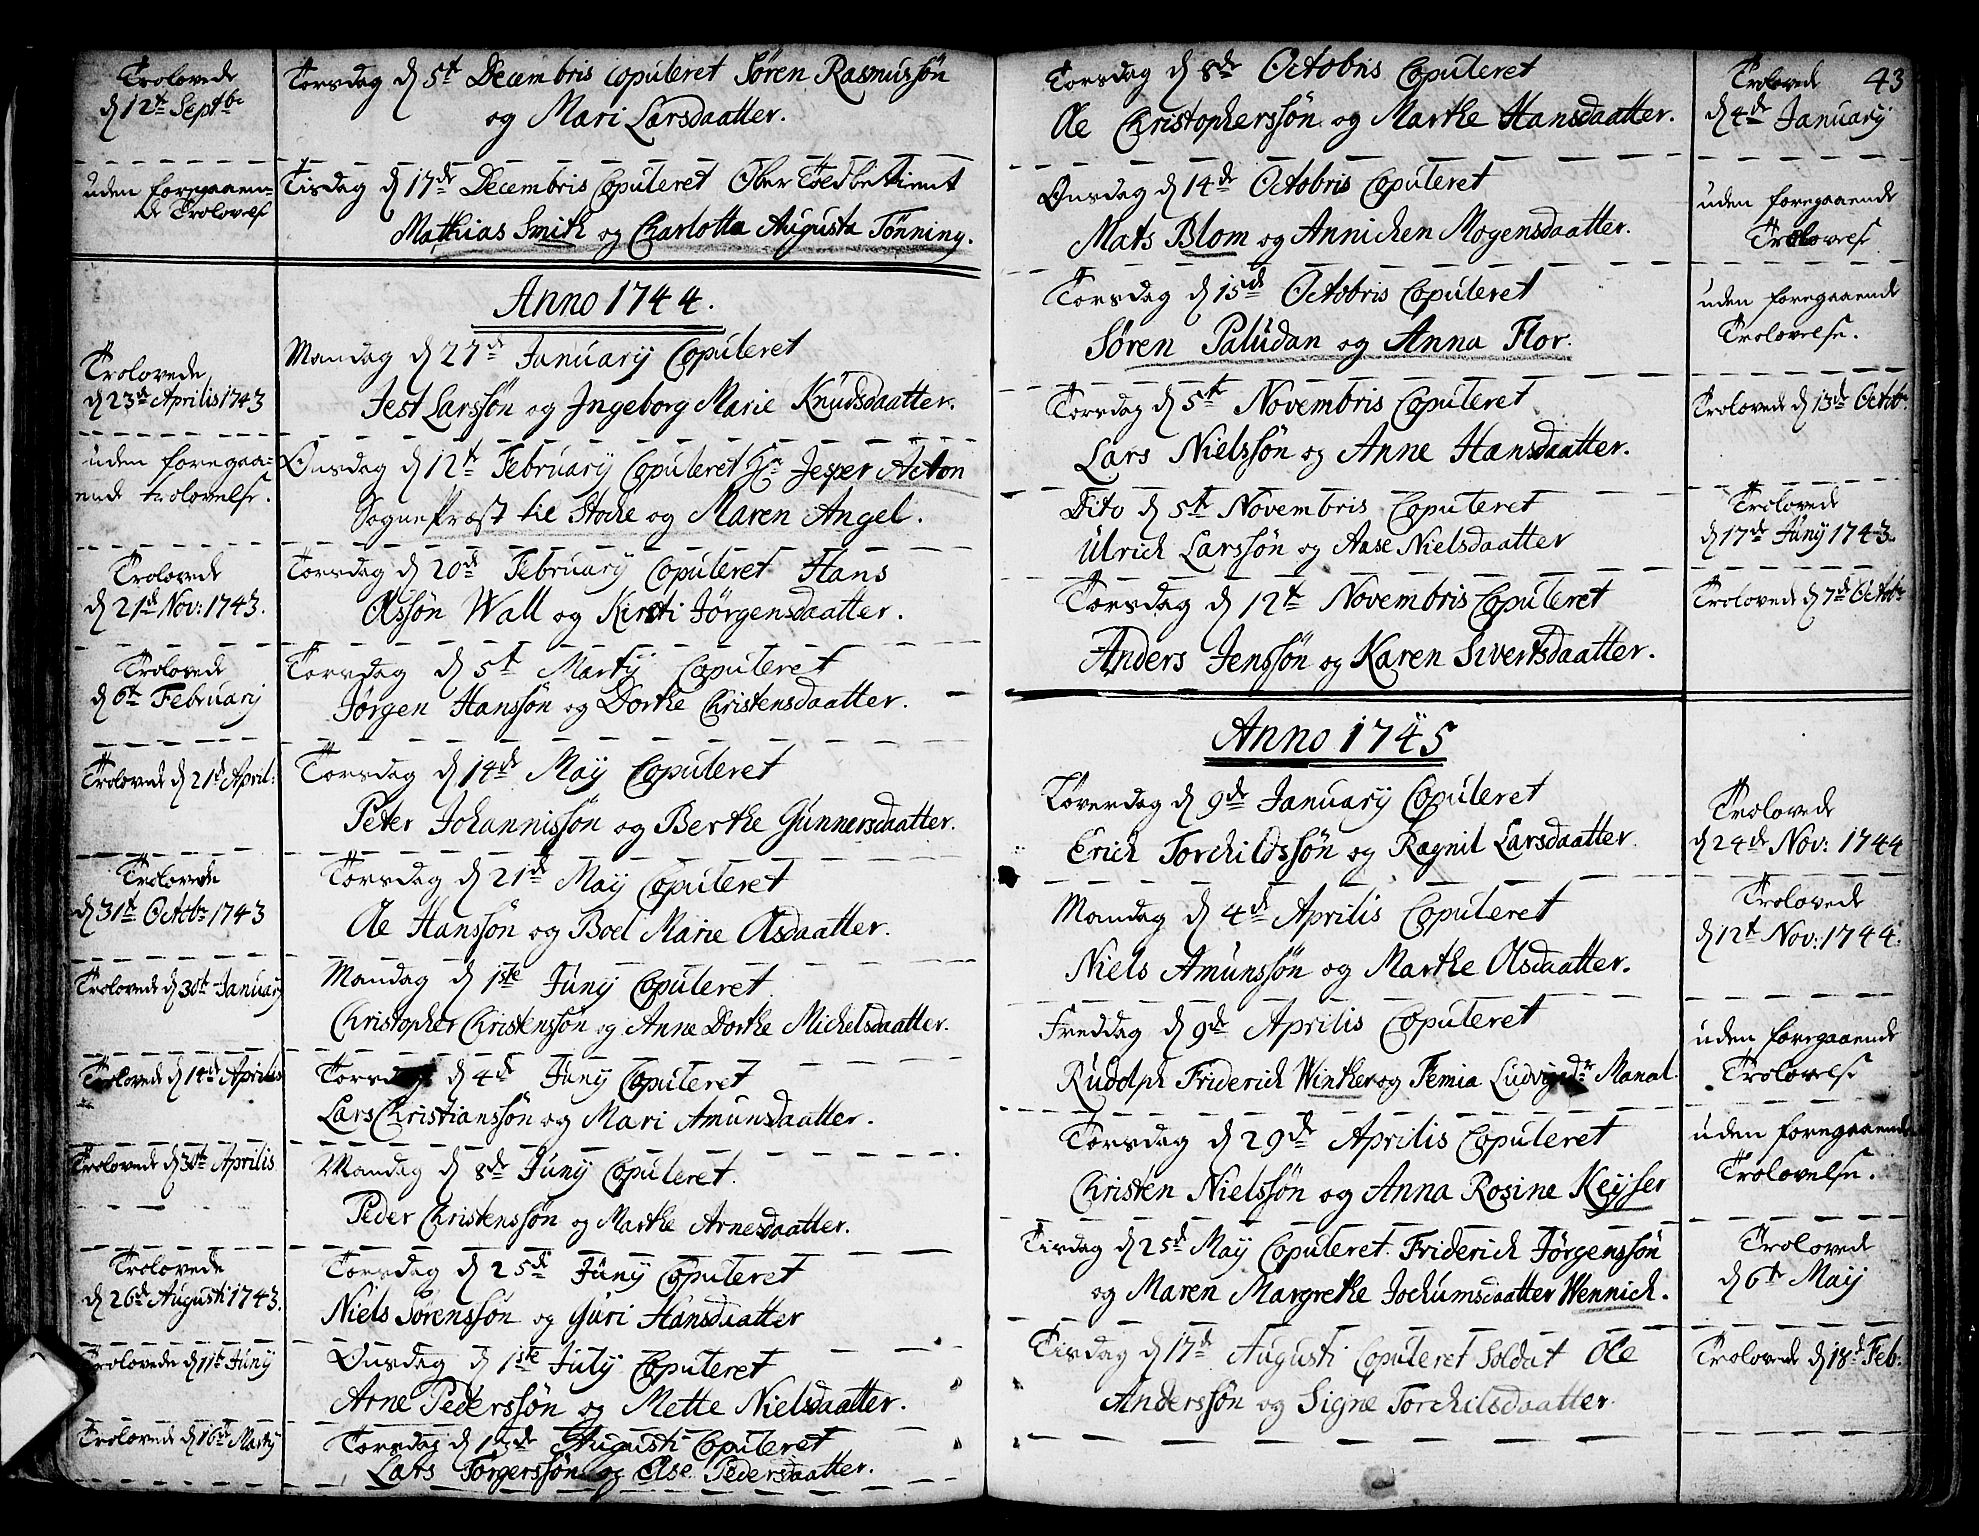 Trolovede
d 12te Septbr
Torsdag d 5te Decembris Copuleret Sören Rasmussön
og Mari Larsdaatter.
uden foregaaen-
de Trolovelse
Tisdag d 17de Decembris Copuleret Ober Toldbetient
Mathias Smith og Charlotta Augusta Tönning.
Anno 1744.
Trolovede
d 23de Aprilis 1743
Mandag d 27de January Copuleret
Jest Larssön og Ingeborg Marie Knudsdaatter.
uden foregaa-
ende trolovelse.
Onsdag d 12te February Copuleret Hr Jesper Acton
Sognepræst til Stocke og Maren Angel.
Trolovede
d 21de Nov: 1743.
Torsdag d 20de February Copuleret Hans
Olssön Wall og Kirsti Jörgensdaatter.
Trolovede
d 6te February
Torsdag d 5te Martij Copuleret
Jörgen Hanssön og Dorthe Christensdaatter.
Trolovede d 21de April:
Torsdag d 14de Maij Copuleret
Peter Johannissön og Berthe Gunnersdaatter.
Trolovede
d 31te Octbr 1743
Torsdag d 21de Maij Copuleret
Ole Hanssön og Boel Marie Olsdaatter.
Trolovede d 30te January
Mandag d 1ste Junij Copuleret
Christopher Christenssön og Anne Dorthe Michelsdaatter.
Trolovede d 14de Aprilis
Torsdag d 4de Junij Copuleret
Lars Christianssön og Mari Amunsdaatter.
Trolovede d 30te Aprilis
Mandag d 8de Junij Copuleret.
Peder Christenssön og Marthe Arnesdaatter.
Trolovede
d 26de Augusti 1743.
Torsdag d 25de Junij Copuleret
Niels Sörenssön og Guri Hansdaatter
Trolovede d 11te Junij
Onsdag d 1ste Julij Copuleret
Arne Pederssön og Mette Nielsdaatter.
Trolovede d 16te Martij
Torsdag d Augusti Copuleret
Lars Törgerssön og Else Pedersdaatter.
43
Torsdag d 8de Octobris Copuleret
Ole Christopherssön og Marthe Hansdaatter.
Trolovede
d 4de January
Onsdag d 14de Octobris Copuleret
Mats Blom og Annichen Mogensdaatter.
uden foregaaende
Trolovelse
Torsdag d 15de Octobris Copuleret
Sören Paludan og Anna Flor.
uden foregaaende
Trolovelse.
Torsdag d 5te Novembris Copuleret
Lars Nielssön og Anne Hansdaatter.
Trolovede d 13de Octobr.
Dito d 5te Novembris Copuleret
Ulrich Larssön og Aase Nielsdaatter
Trolovede
d 17de Junij 1743.
Torsdag d 12te Novembris Copuleret
Anders Jenssön og Karen Sivertsdaatter.
Trolovede d 7de Octobr
Anno 1745
Löverdag d 9de January Copuleret
Erich Torchildssön og Ragnil Larsdaatter
Trolovede
d 24de Nov: 1744
Mandag d 4de Aprilis Copuleret
Niels Amunssön og Marthe Olsdaatter.
Trolovede
d 12te Nov: 1744.
Freddag d 9de Aprilis Copuleret
Rudolph Friderich Winther og Femia Ludvigsdr Manal.
uden foregaaende
Trolovelse
Torsdag d 29de Aprilis Copuleret
Christen Nielssön og Anna Rosine Keyser
uden foregaaende
Trolovelse.
Tisdag d 25de Maij Copuleret Friderich Jörgenssön
og Maren Margrethe Jochumsdaatter Wennich.
Trolovede
d 6te Maij
Tisdag d 17de Augusti Copuleret Soldat Ole
Anderssön og Signe Torchilsdaatter.
Trolovede d 18de Feb: